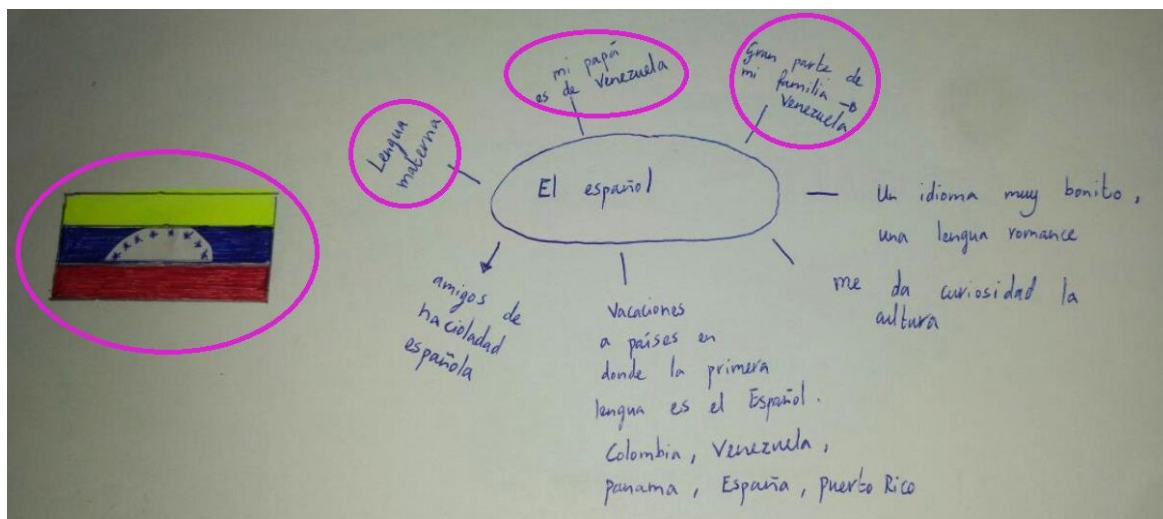 mi papá
es de Venezuela
Gran parte de
mi familia →
Venezuela
Lengua
materna
El español
Un idioma muy bonito,
una lengua romance
me da curiosidad la
cultura
amigos de
nacioladad
española
Vacaciones
a países en
donde la primera
lengua es el Español.
Colombia, Venezuela,
panama, España, Puerto Rico